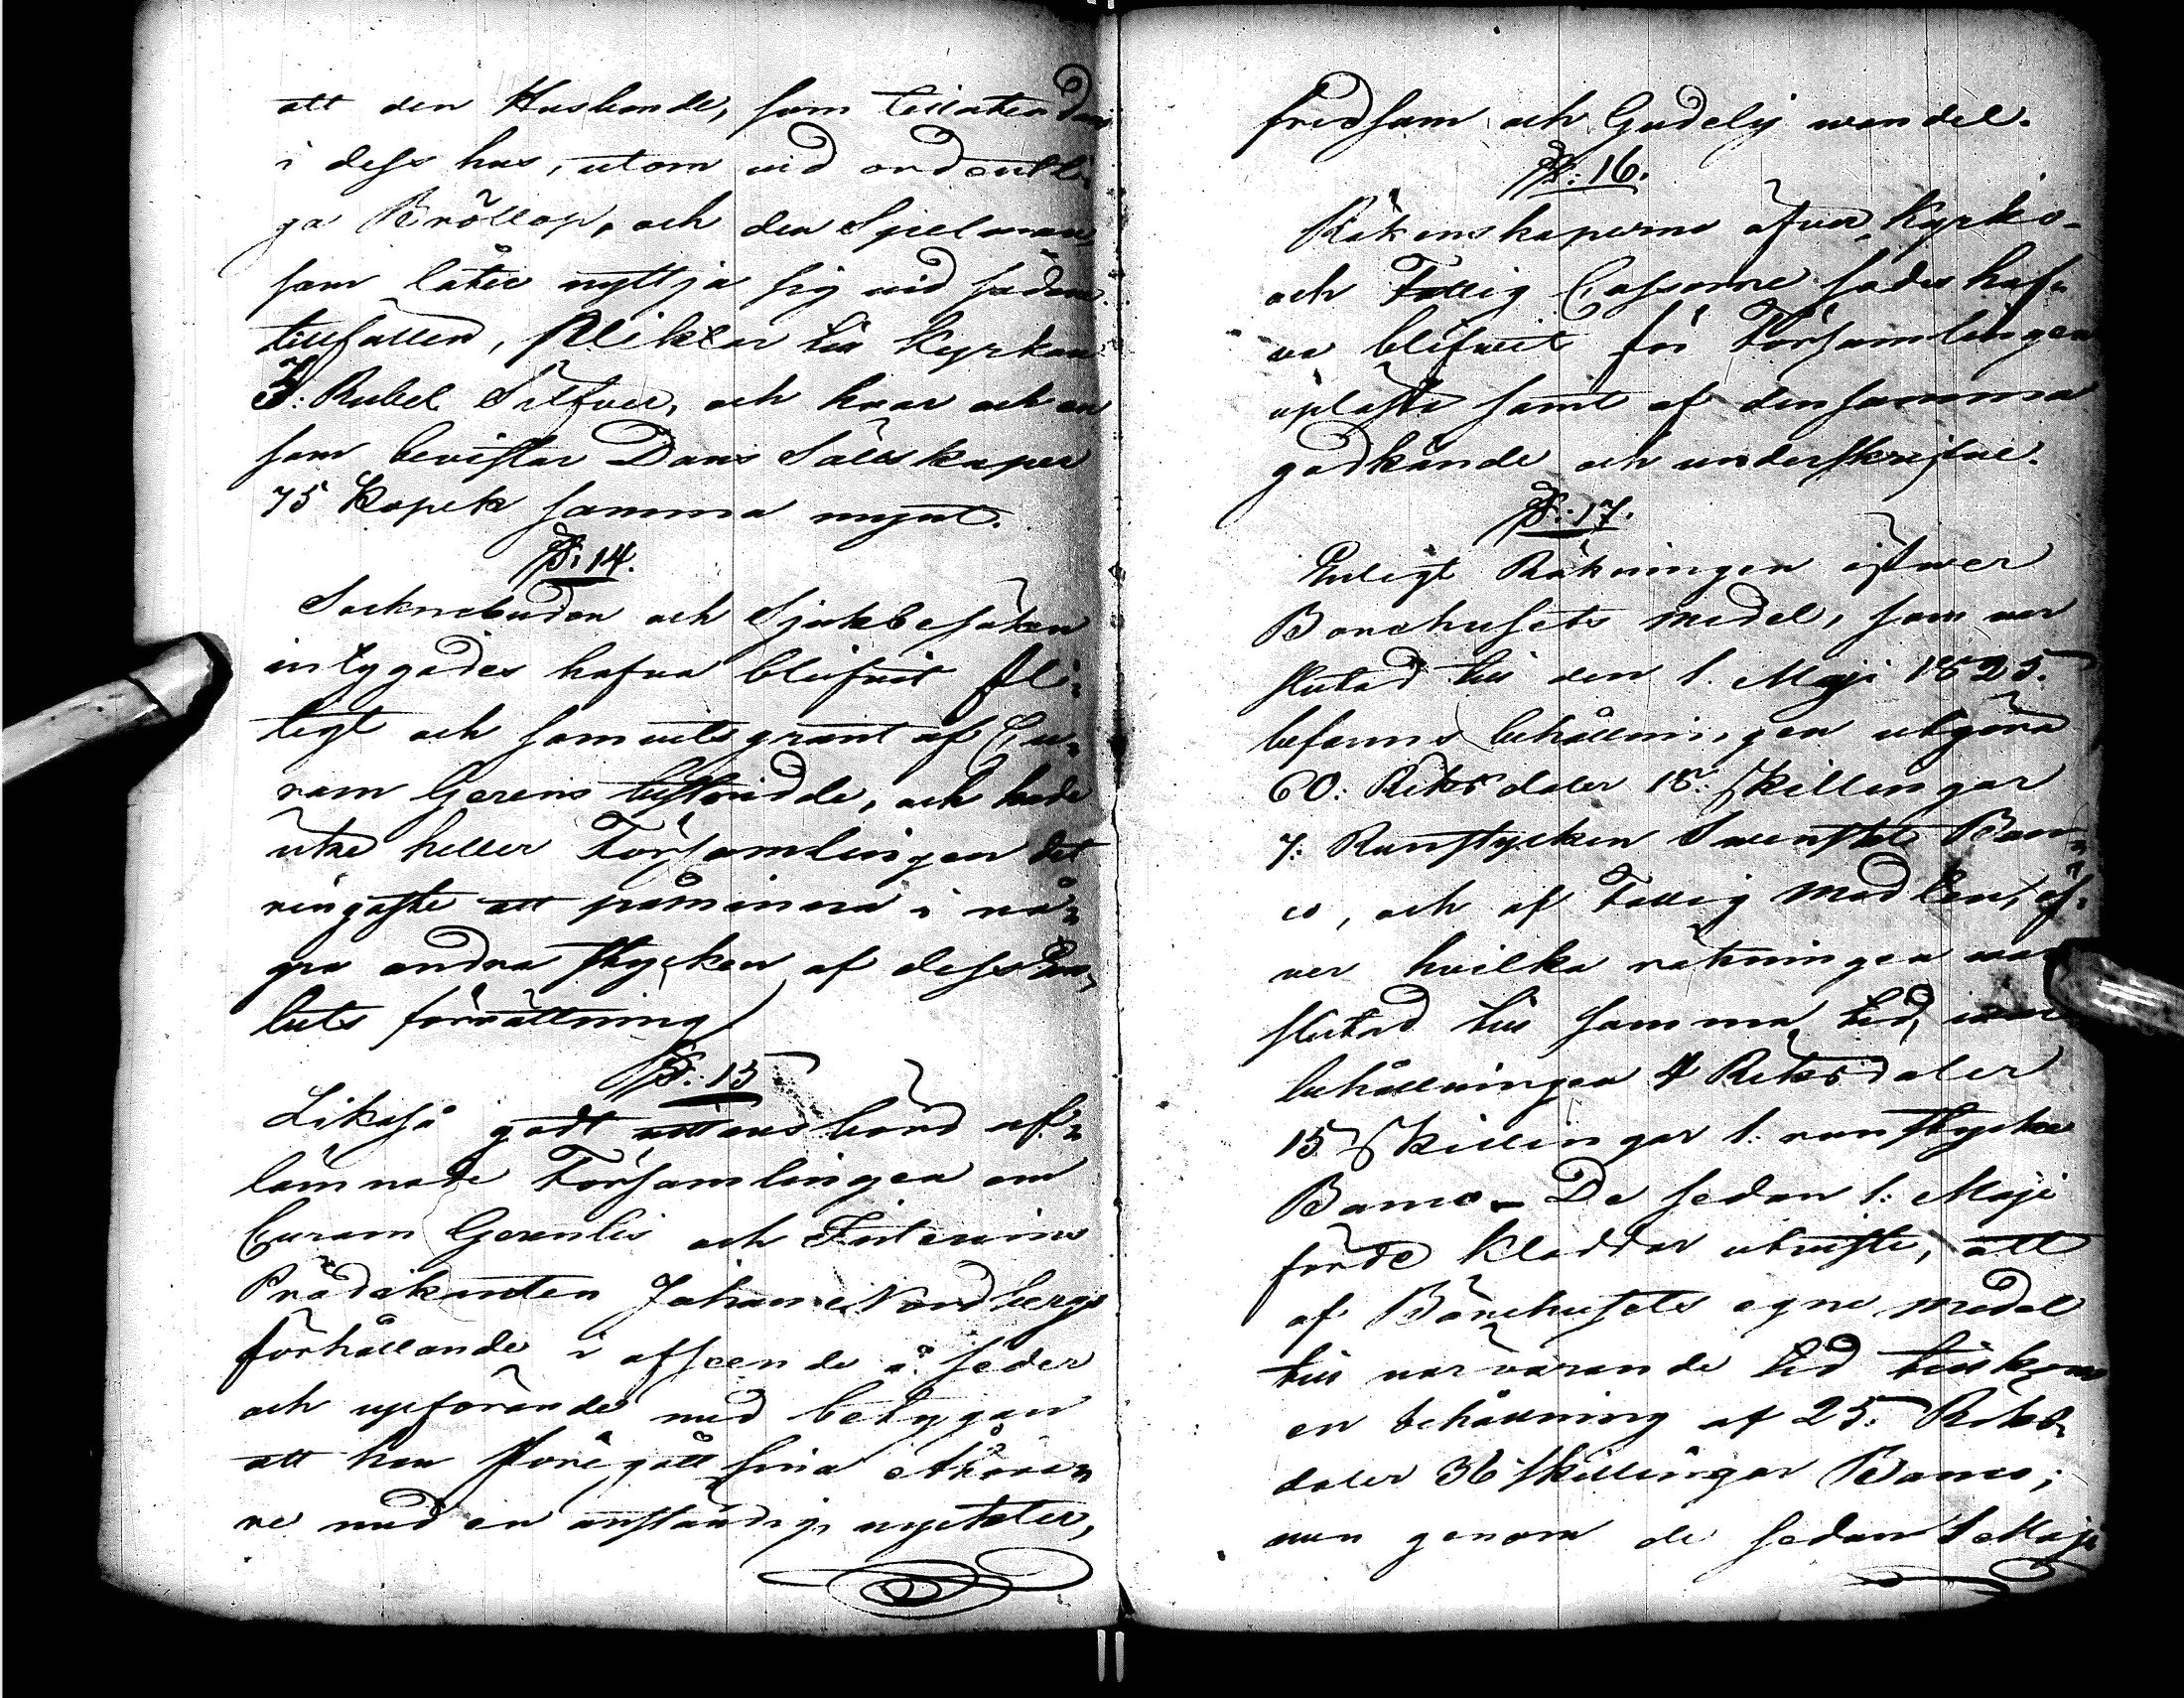 att den Husbonde, som tillåter dans
i dess hus, utom vid ordentli-
ga Bröllop, och den Spelman,
som låter nyttja sig vid sådane
tillfällen, pliktar till Kyrkan
3: Rubel Silfver, och hvar och en
som bevistar Dans Sällskaper
75 Kopek samma mynt.
§: 14.
Socknebuden och Sjukbesöken
intygades hafva blifvit fli-
tigt och samvetsgrant af Cu-
ram Gerens bestridde, och hade
icke heller Församlingen det
ringaste att påminna i nå-
gra andra stycken af dess Em-
bets förrättning
§: 15
Likaså godt vittnesbörd af-
lämnade Församlingen om
Curam Gerentis och Interims
Prädikanten Johan Nordbergs
förhållande i afseende å seder
och upförande med betygan
att han föregått sina Åhöra-
re med en anständig, nyckter,
fridsam och Gudelig wandel.
§: 16.
Räkenskaperne öfver Kyrko-
och Fattig Cassorne sades haf-
va blifvit för Församlingen
upläste samt af densamma
godkände och underskrifne.
§: 17.
Enligt Räkningen öfwer
Bönehusets medel, som war
slutad till den 1. Maji 1825.
befanns behållningen utgöra
60: Riksdaler 18: Skillingar
7: Runstycken Swenskt Ban-
co, och af Fattig Medlen, öf-
ver hvilka räkningen war
slutad till samma tid, war
behållningen 4 Riksdaler
15 Skillingar 1: runstycke
Banco – De sedan 1: Maji
förde kladdar utwiste, att
af Bönehusets egne medel
till närvarande tid tillkom
en behållning af 25: Riks-
daler 36 skillingar Banco;
men genom de sedan 1 Maji